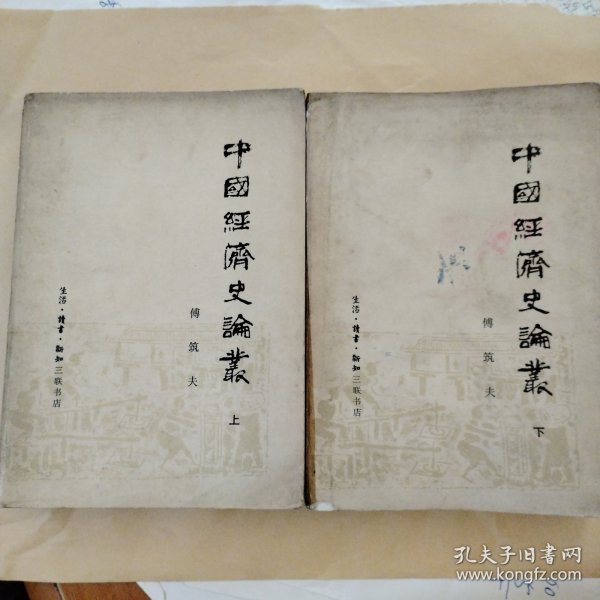 中國經濟史論叢
上
傅筑夫
生活·讀書·新知三联书店
中國經濟史論叢
下
傅筑夫
生活·讀書·新知三联书店
孔夫子旧書网
www.kongfz.com